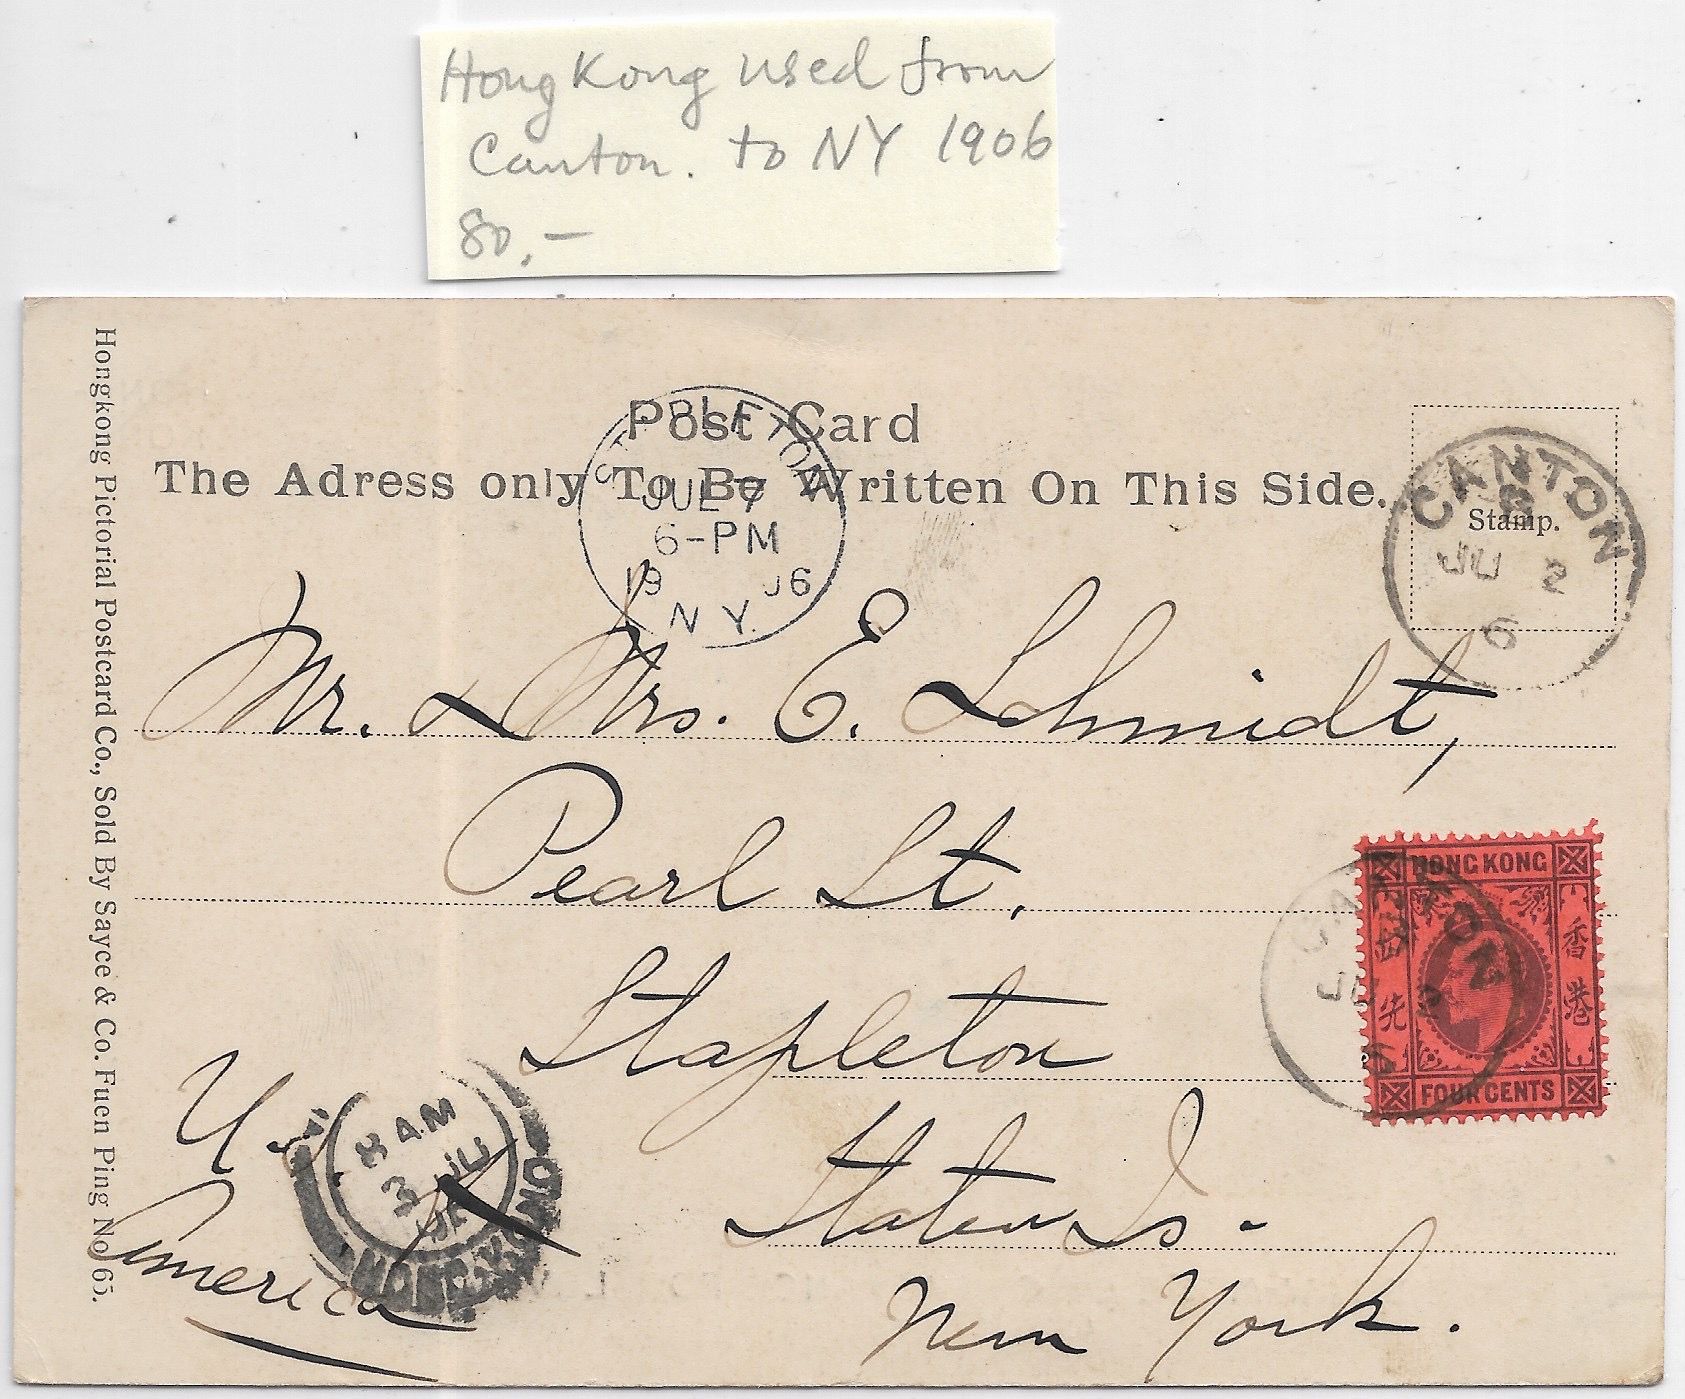 Hong Kong used from
Canton. to NY 1906
80.-
Hongkong Pictorial Postcard Co., Sold By Sayce & Co. Fuen Ping No 65.
Post Card
The Adress only To Be Written On This Side.
Stamp.
STAPLETON
JUL 7
6-PM
19 06
N Y.
CANTON
JU 2
6
Mr. & Mrs. E. Schmidt,
Pearl St.
Stapleton
Staten Is.
New York.
U.S.A
America
HONG KONG
香港
FOUR CENTS
CANTON
2
6
8 AM
3 JU
HONG KONG